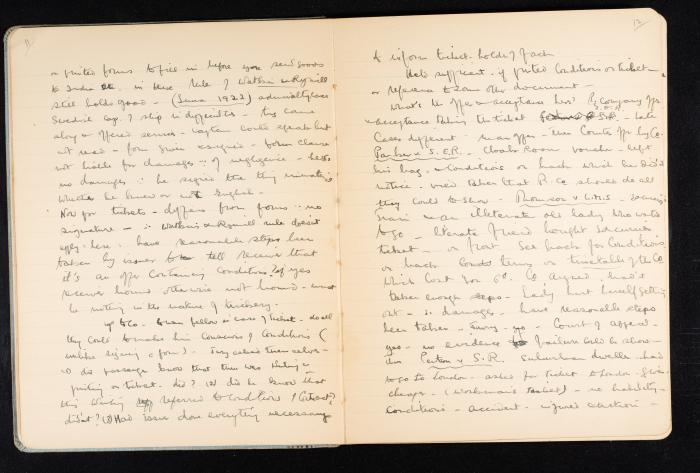 11
or printed forms to fill in before you send goods
to India etc. in these rule of Watkins v Rymill
still holds good – (Luna 1922) admiralty case
Swedish Cap. ? ship in difficulties – tug came
along & offered services – captain could speak but
not read – form given & signed – form clause
not liable for damages of negligence – held
no damages he signed the thing
whether he knew or not English.
Now for tickets – differs from forms no
signature – Watkins v Rymill rule doesn't
apply here have reasonable steps been
taken by issuer to tell receiver that
it's an offer containing conditions. if yes
receiver bound otherwise not bound – must
be nothing in the nature of trickery.
up to Co. – fellow in case of ticket – do all
they could to make him conscious of conditions (
unlike signing a form) – Jury asked themselves –
(1) did passenger know that there was writing or
printing on ticket. did? (2) did he know that
this writing referred to conditions of contract?
didn't? (3) Had issuer done everything necessary
12
to inform ticket-holder of fact
Held sufficient if printed conditions on ticket
or reference to some other document –
What's the offer & acceptance here? Ry Company offers
& acceptance taking the ticket – late
cases different – man offers – then counter offer by Co.
Parker v S.E.R. Cloak Room voucher – left
his bag & conditions on back which he didn't
notice. Lord that R. Co should do all
they could to show – Thompson v L.M.S. –
train – an illiterate old lady who wants
to go – literate friend bought excursion
ticket – on front See back for Conditions
on back terms on timetable of the Co
which cost you 6d. Co. argued – hadn't
taken enough steps – Lady hurt herself getting
out – damages – have reasonable steps
been taken – Jury – no – Court of appeal –
yes – no evidence of failure to show –
Penton v S.R. Suburban dweller – had
to go to London – asked for ticket to London – given
cheap – (workman's ticket) – no liability –
conditions – accident – injured